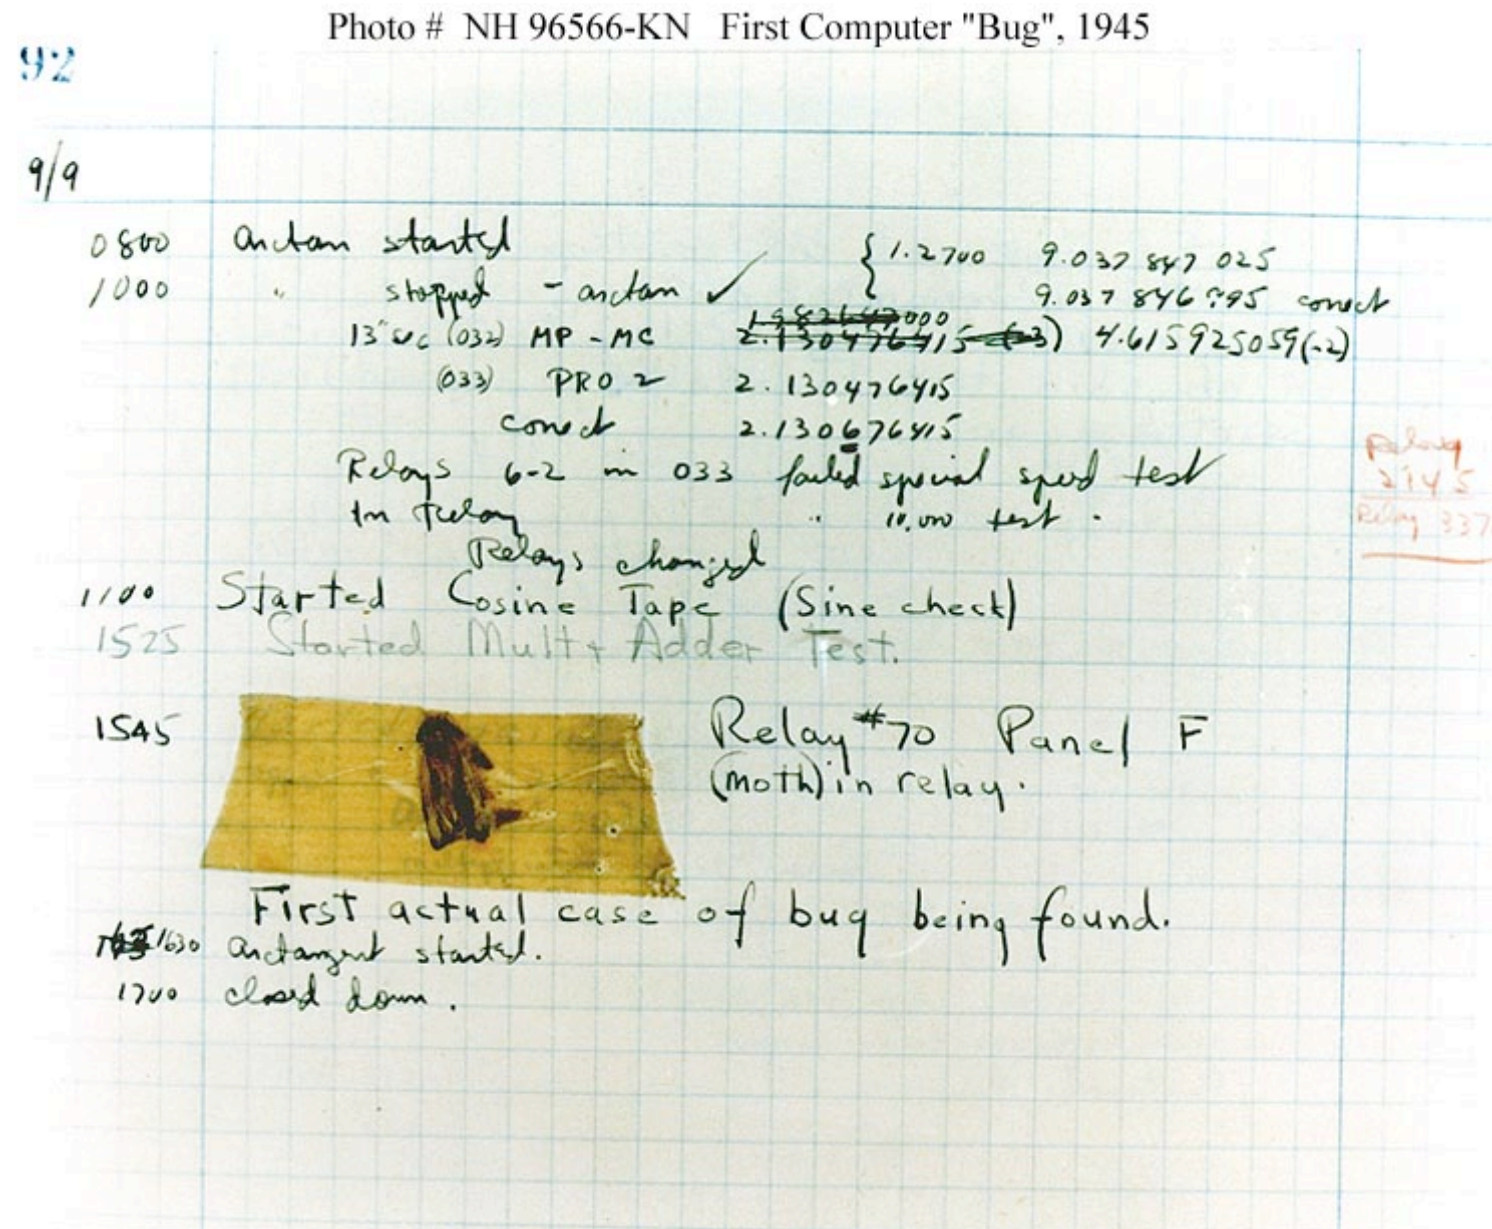 Photo # NH 96566-KN First Computer "Bug", 1945
92
9/9
0800 arctan started { 1.2700 9.037 847 025
1000 " stopped - arctan ✓ 9.037 846 995 correct
13"uc (032) MP - MC 2.130476415 (-3) 4.615925059(-2)
(033) PRO 2 2.130476415
correct 2.130676415
Relays 6-2 in 033 failed special speed test
In Relay " 10,000 test .
Relay
2145
Relay 337
Relays changed
1100 Started Cosine Tape (Sine check)
1525 Started Mult+ Adder Test.
1545 Relay #70 Panel F
(moth) in relay.
First actual case of bug being found.
1630 arctangent started.
1700 closed down.